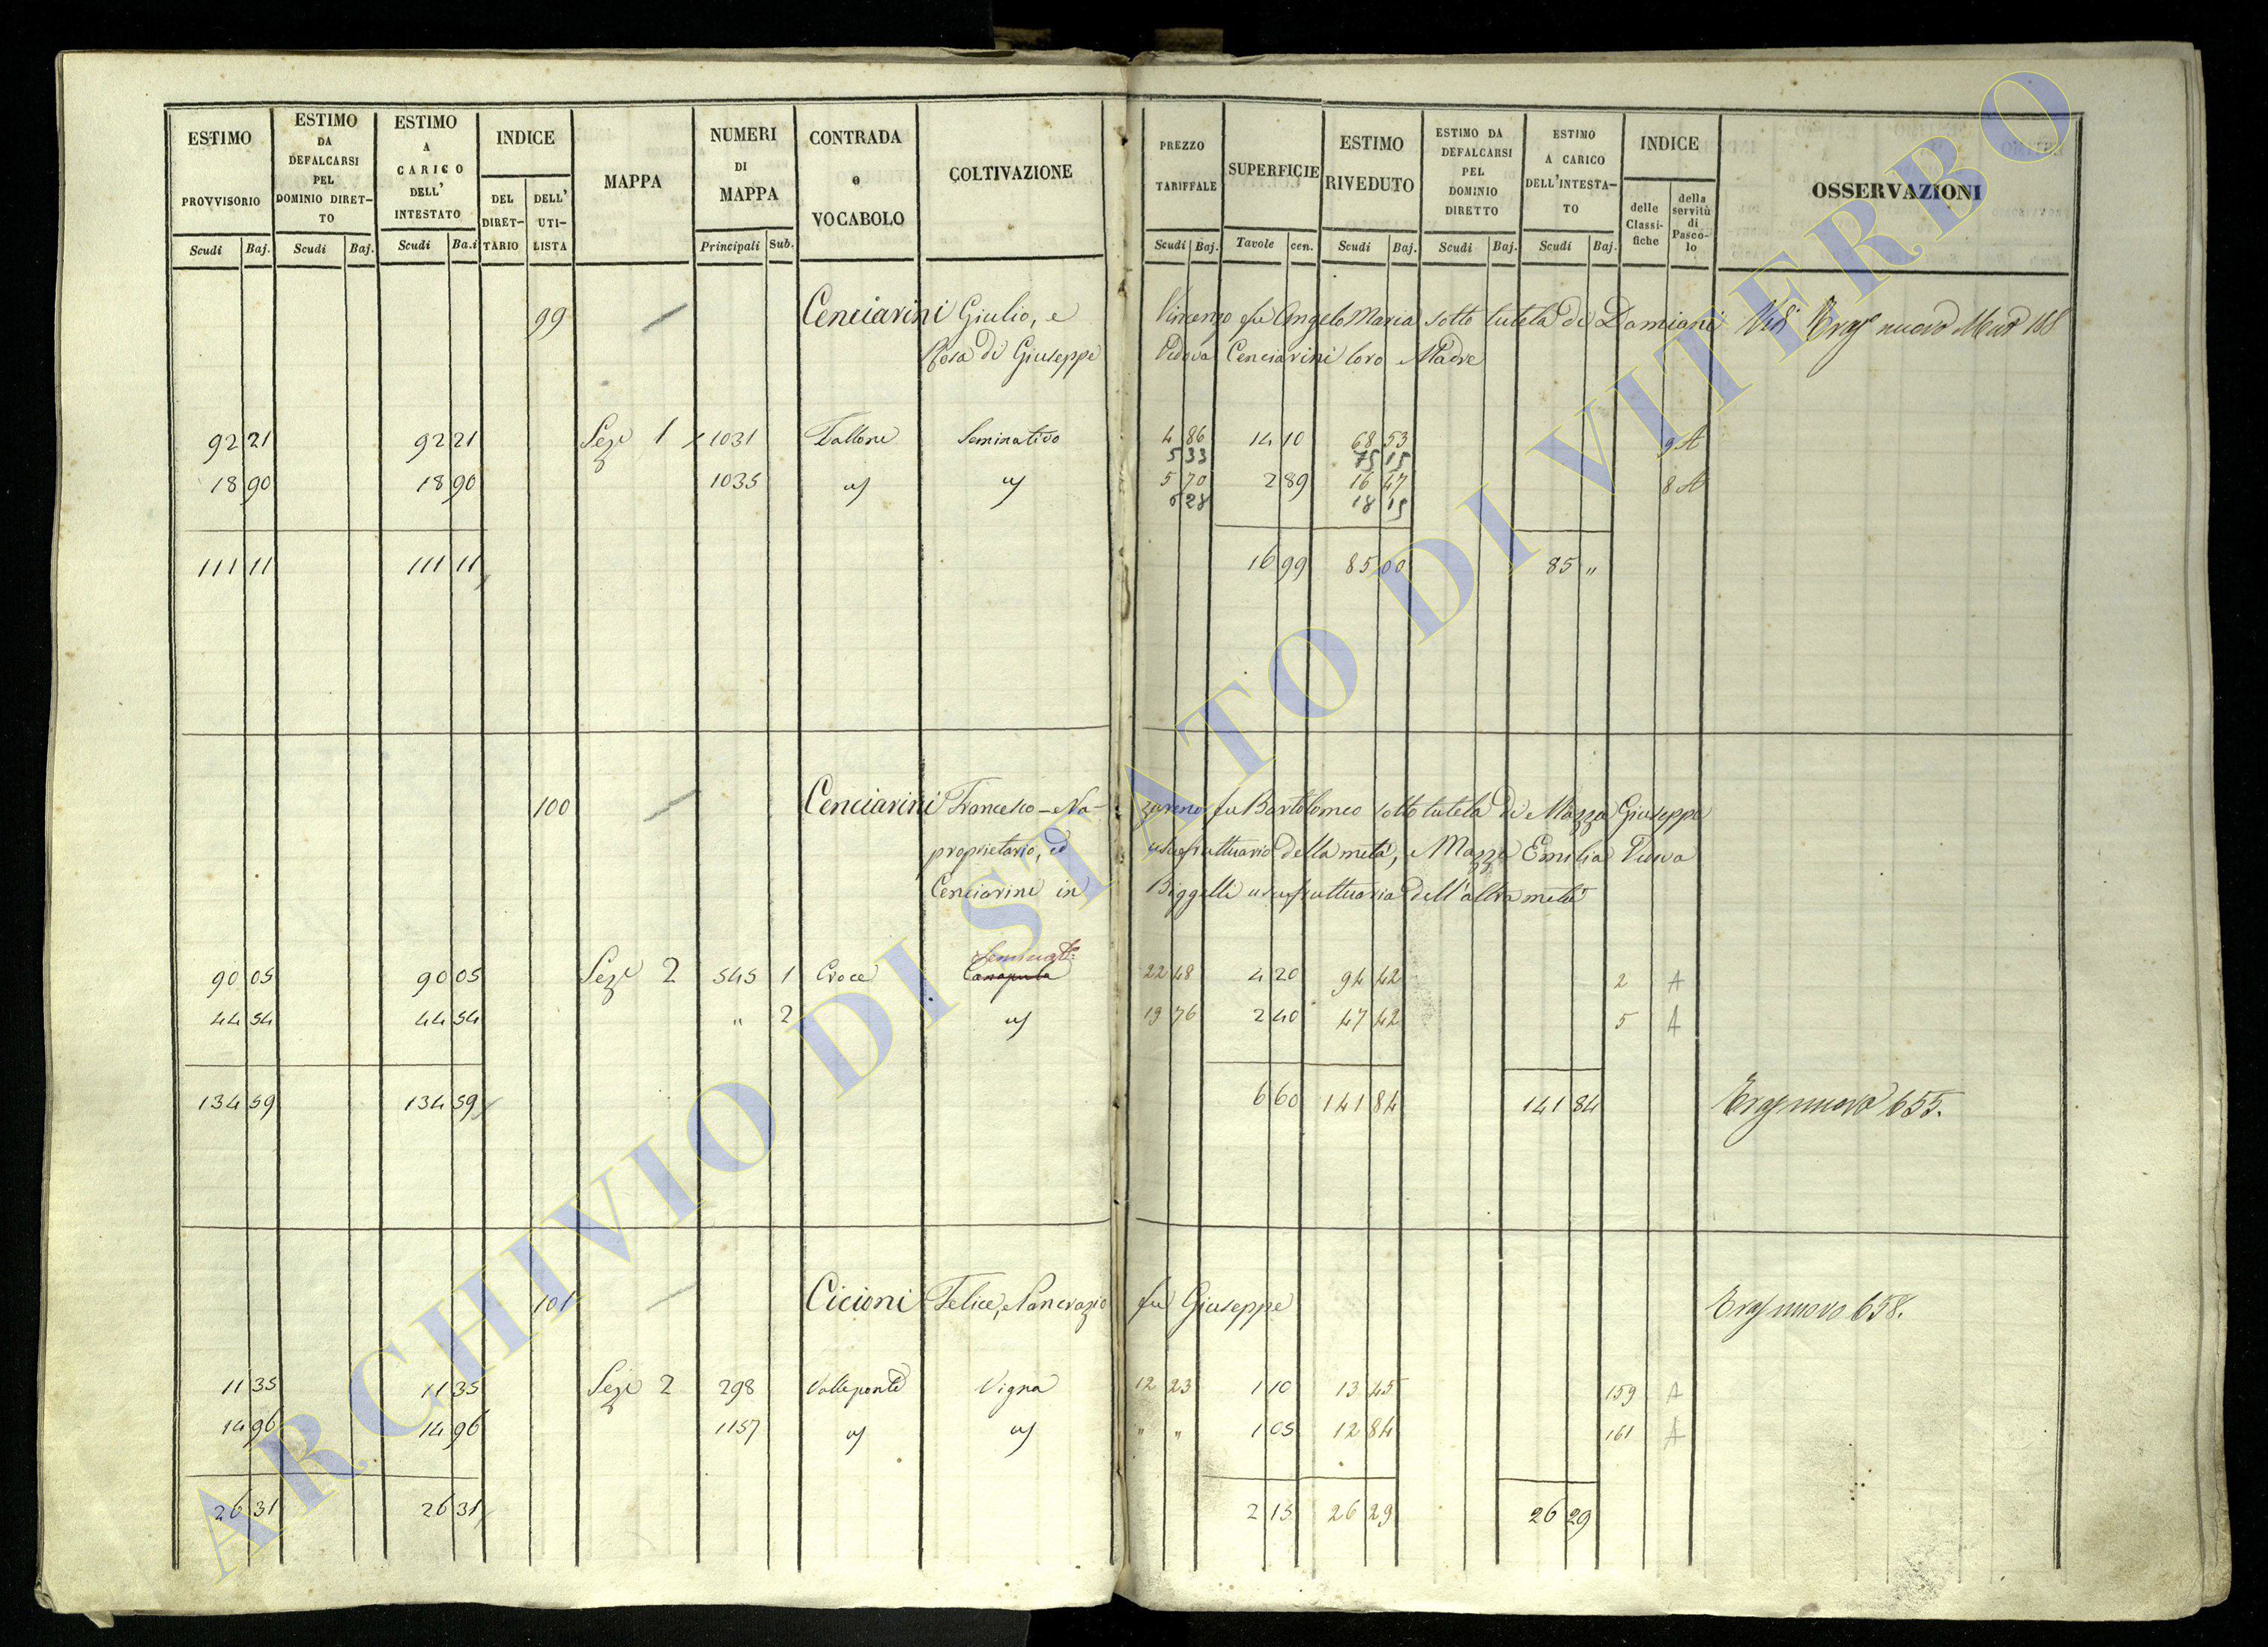 ESTIMO PROVVISORIO Scudi Baj.
ESTIMO DA DEFALCARSI PEL DOMINIO DIRET-TO Scudi Baj.
ESTIMO A CARICO DELL' INTESTATO Scudi Ba.i
INDICE DEL DIRET-TARIO DELL' UTI-LISTA
MAPPA
NUMERI DI MAPPA Principali Sub.
CONTRADA o VOCABOLO
COLTIVAZIONE
PREZZO TARIFFALE Scudi Baj.
SUPERFICIE Tavole cen.
ESTIMO RIVEDUTO Scudi Baj.
ESTIMO DA DEFALCARSI PEL DOMINIO DIRETTO Scudi Baj.
ESTIMO A CARICO DELL'INTESTA-TO Scudi Baj.
INDICE delle Classi-fiche della servitù di Pasco-lo
OSSERVAZIONI
99 Cenciarini Giulio, e Vincenzo fu Angelo Maria sotto tutela di Damiani nuovo 188
Rosa di Giuseppe Vedova Cenciarini loro Madre
92 21 92 21 Sezе 1 1031 Fallone Seminativo 4 86 14 10 68 53 9 A
5 33 75 15
18 90 18 90 1035 " " 5 70 2 89 16 47 8 A
6 28 18 15
111 11 111 11 16 99 85 00 85 "
100 Cenciarini Francesco-Na-zareno fu Bartolomeo sotto tutela di Mazza Giuseppe
proprietario, ed usufruttuario della metà, e Mazza Emilia Vedova
Cenciarini in Biggelli usufruttuaria dell'altra metà
Seminat:
90 05 90 05 Seze 2 545 1 Croce Canapula 22 48 4 20 94 42 2 A
44 54 44 54 " 2 " 19 76 2 40 47 42 5 A
134 59 134 59 6 60 141 84 141 84 nuovo 655.
101 Cicioni Felice, e Pancrazio fu Giuseppe nuovo 658.
11 35 11 35 Seze 2 298 Valleponte Vigna 12 23 1 10 13 45 159 A
14 96 14 96 1157 " " " " 1 05 12 84 161 A
26 31 26 31 2 15 26 29 26 29
ARCHIVIO DI STATO DI VITERBO